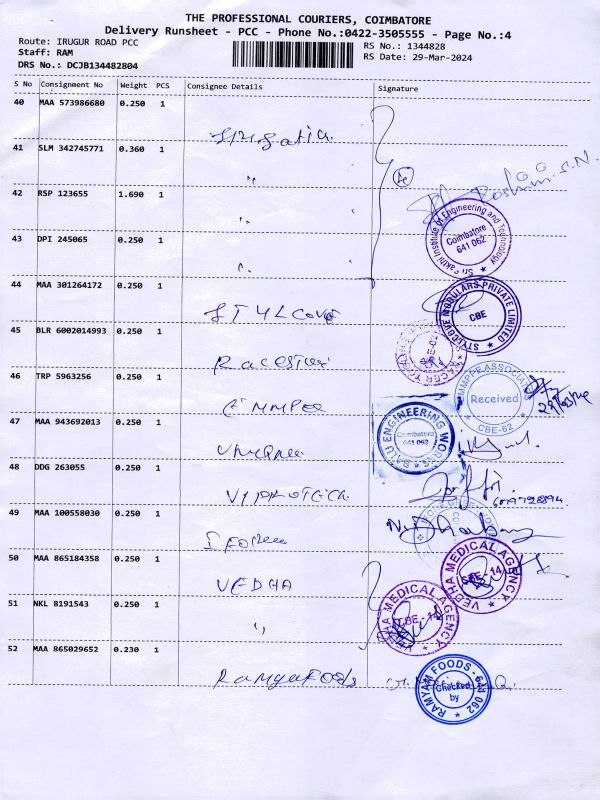 THE PROFESSIONAL COURIERS, COIMBATORE
Delivery Runsheet - PCC - Phone No.:0422-3505555 - Page No.:4
Route: IRUGUR ROAD PCC
RS No.: 1344828
Staff: RAM
RS Date: 29-Mar-2024
DRS No.: DCJB134482804
S No Consignment No Weight PCS Consignee Details Signature
40 MAA 573986680 0.250 1
41 SLM 342745771 0.360 1
"
42 RSP 123655 1.690 1
"
Sri Sakthi Institute of Engineering and Technology
Coimbatore
641 062
43 DPI 245065 0.250 1
"
44 MAA 301264172 0.250 1
STYLCOVE
STYLCOVE MODULARS PRIVATE LIMITED
CBE
45 BLR 6002014993 0.250 1
46 TRP 5963256 0.250 1
EMMPEE
EMMPEE ASSOCIATES
Received
CBE-62
47 MAA 943692013 0.250 1
BALU ENGINEERING WORKS
Coimbatore
641 062
48 DDG 263055 0.250 1
49 MAA 100558030 0.250 1
50 MAA 865184358 0.250 1
VEDHA
VEDHA MEDICAL AGENCY
CBE - 14
51 NKL 8191543 0.250 1
"
VEDHA MEDICAL AGENCY
CBE - 14
52 MAA 865029652 0.230 1
RAMYAM FOODS - 641 062
Checked
by